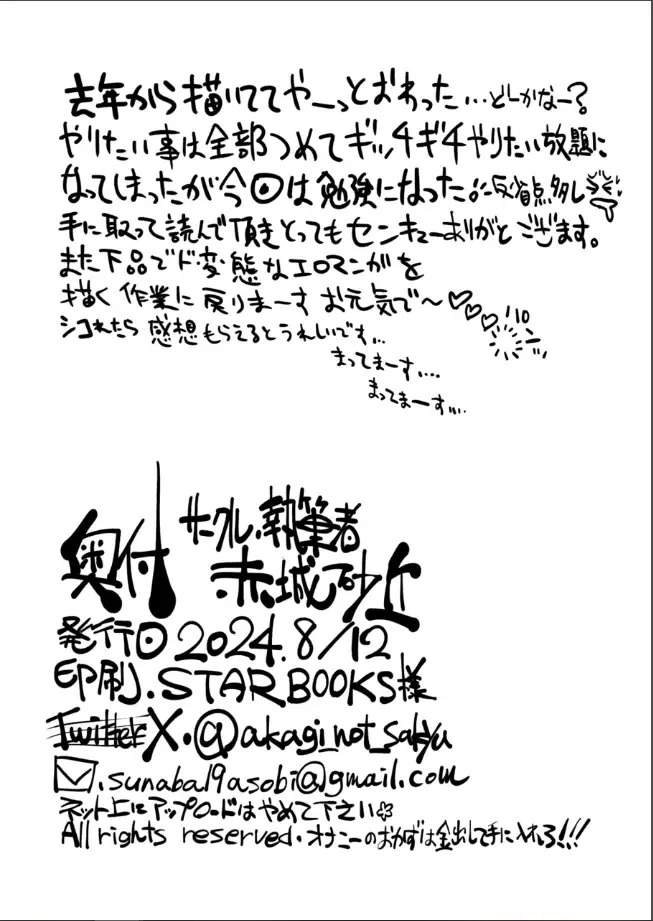 去年から描いててやーっとおわった…どしかなー?
やりたい事は全部つめてギッチギチやりたい放題に
なってしまったが今回は勉強になった。に反省点多し
手に取って読んで頂きとってもセンキューありがとございます。
また下品でド変態なエロマンガを
描く作業に戻りまーすお元気で〜♡♡♡
シコれたら感想もらえるとうれしいです…
まってまーす…
まってまーす…
奥付
サークル、執筆者
赤城砂丘
発行日2024.8/12
印刷.STARBOOKS様
Twitter X.@akagi_not_sakyu
.sunaba19asobi@gmail.com
ネット上にアップロードはやめて下さい
All rights reserved.オナニーのおかずは金出して手に入れろ!!!